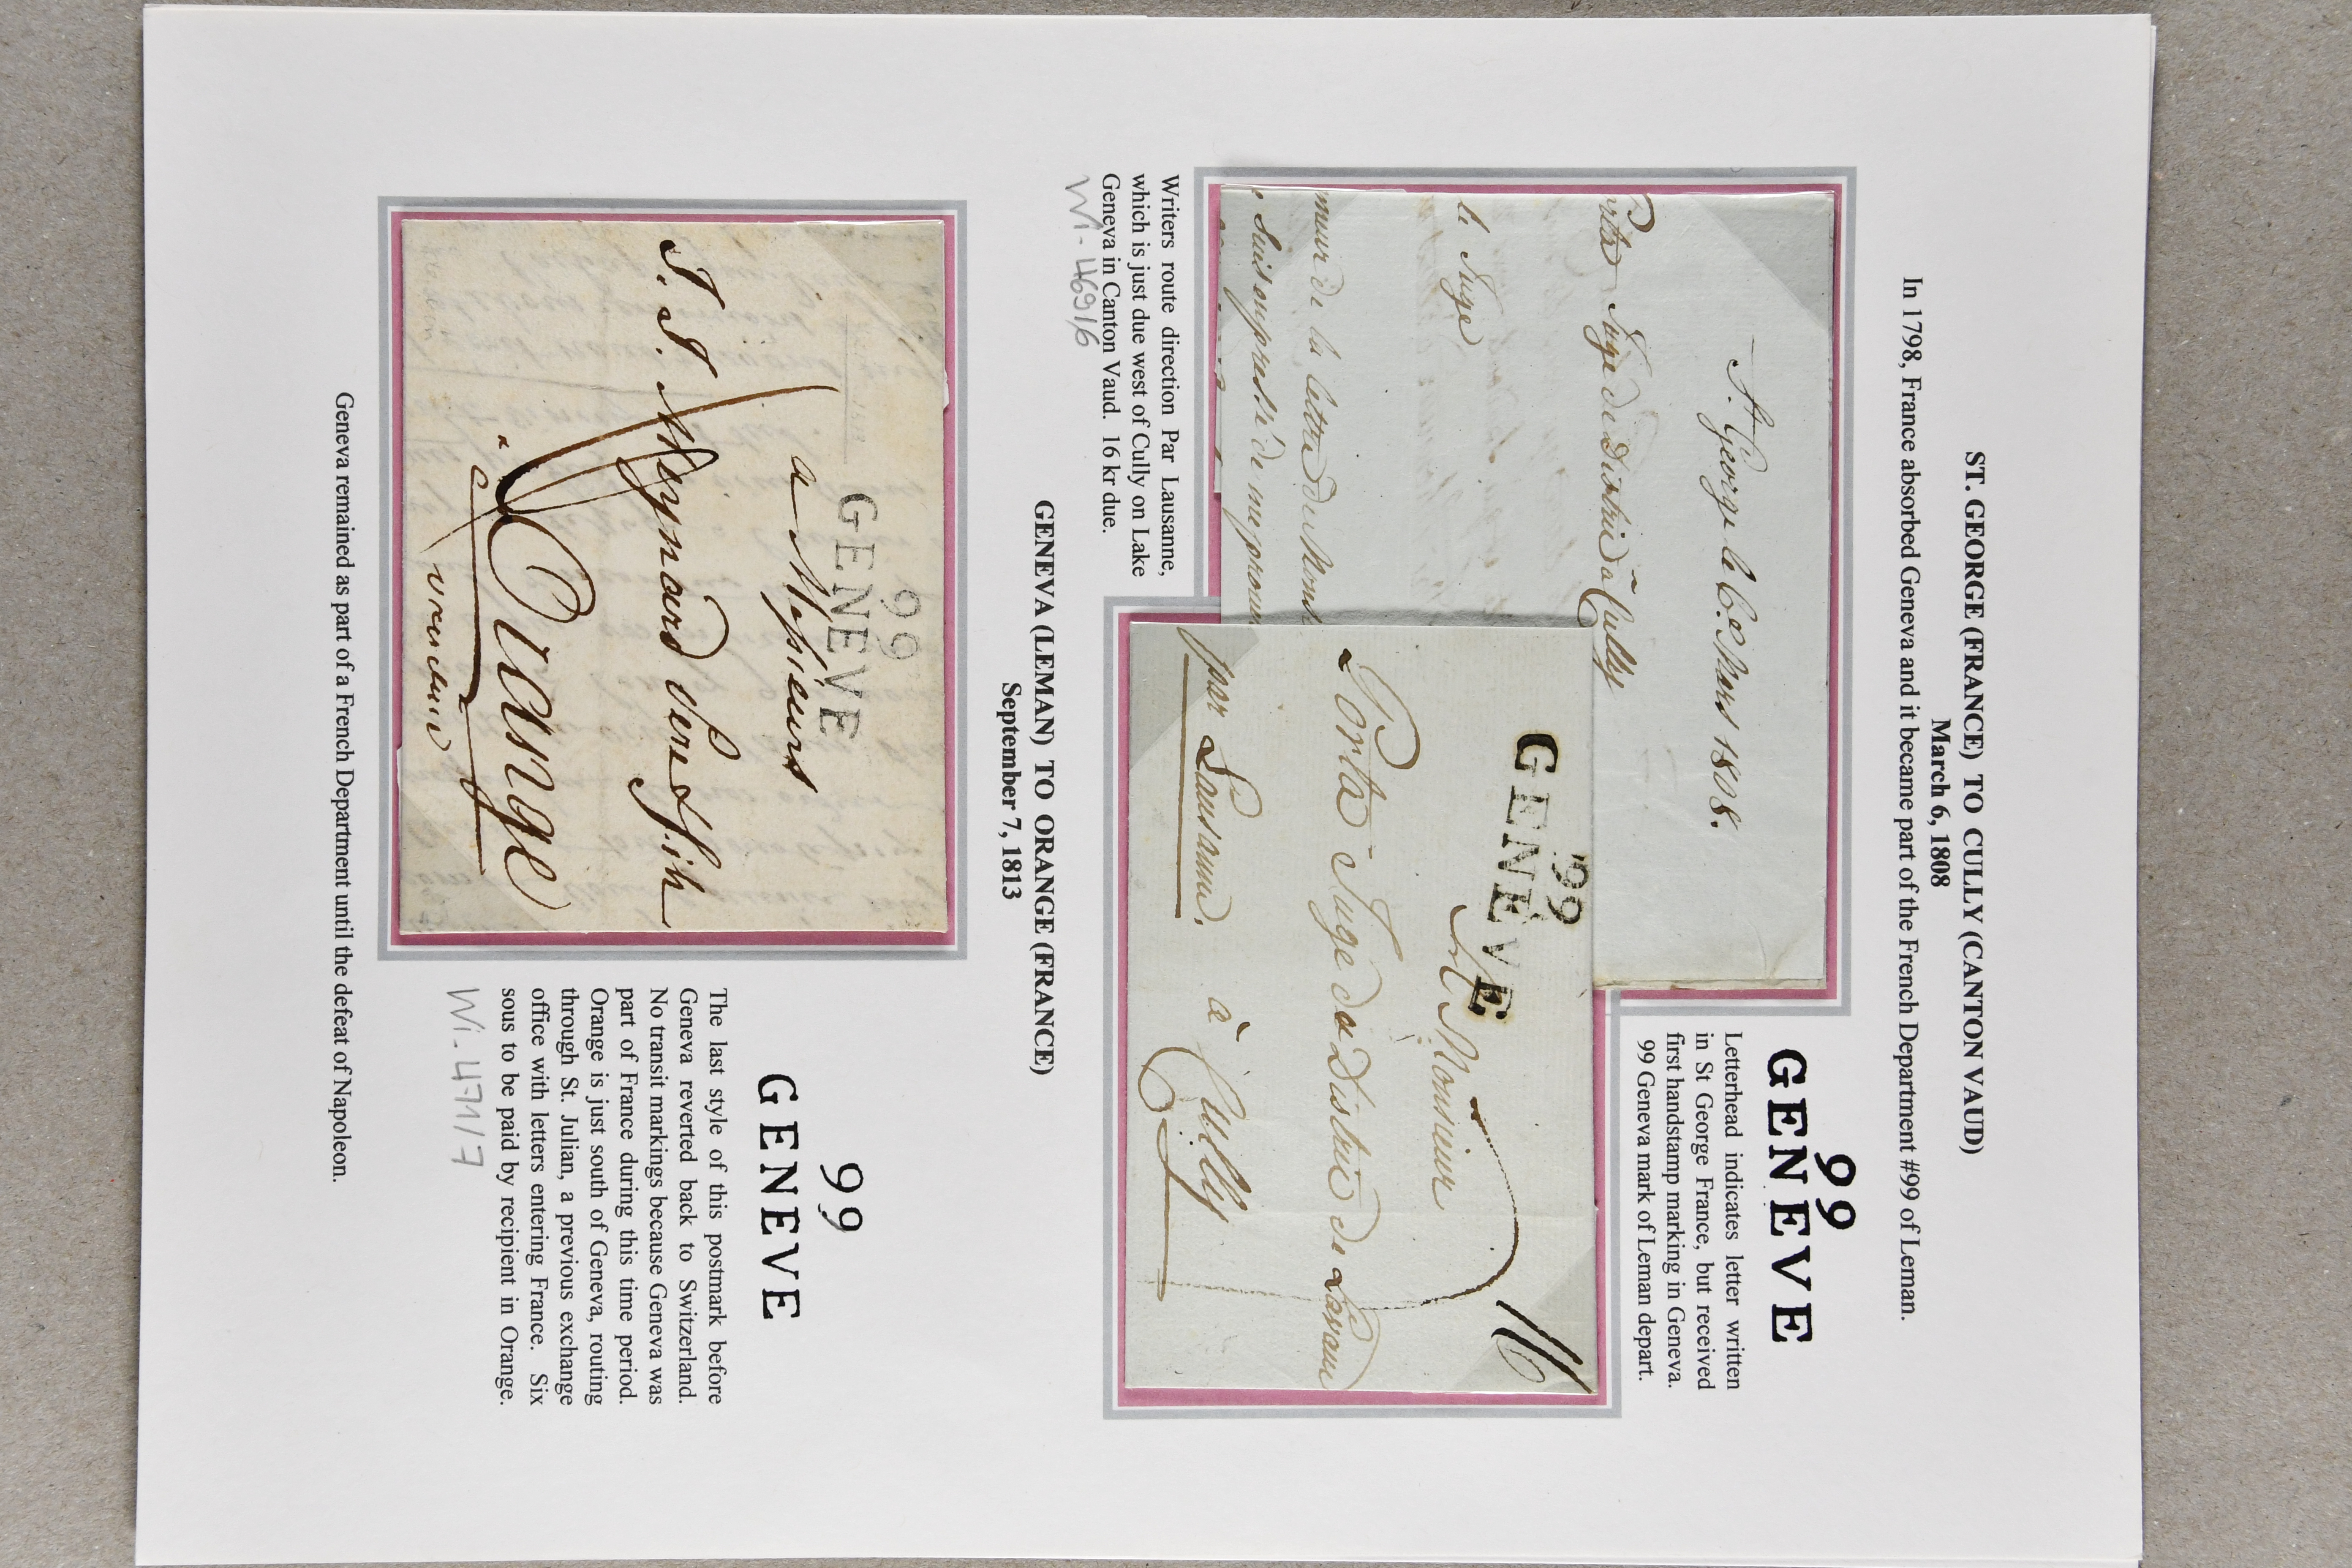 ST. GEORGE (FRANCE) TO CULLY (CANTON VAUD)
March 6, 1808
In 1798, France absorbed Geneva and it became part of the French Department #99 of Leman.
St. George le 6e. Mars 1808.
Juge du District à Cully
le Juge
de la lettre
99
GENEVE
Letterhead indicates letter written
in St George France, but received
first handstamp marking in Geneva.
99 Geneva mark of Leman depart.
99
GENEVE
16
Monsieur
Porta Juge du District de Lavaux
par Lausanne. à Cully
Writers route direction Par Lausanne,
which is just due west of Cully on Lake
Geneva in Canton Vaud. 16 kr due.
Wi-469/6
GENEVA (LEMAN) TO ORANGE (FRANCE)
September 7, 1813
99
GENEVE
a Messieurs
J. J. Meynard père & fils
Orange
99
GENEVE
The last style of this postmark before
Geneva reverted back to Switzerland.
No transit markings because Geneva was
part of France during this time period.
Orange is just south of Geneva, routing
through St. Julian, a previous exchange
office with letters entering France. Six
sous to be paid by recipient in Orange.
Wi-471/7
Geneva remained as part of a French Department until the defeat of Napoleon.